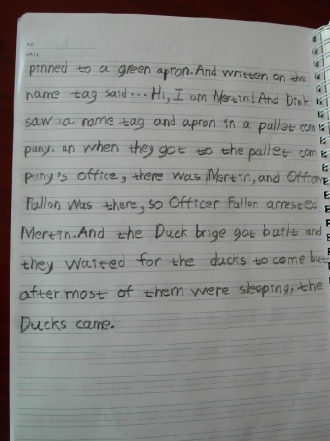 NO
DATE
pinned to a green apron. And written on the
name tag said... Hi, I am Mertin! And Dink
saw a name tag and apron in a pallet com
pany. un when they got to the pallet com
pany's office, there was Mertin, and Officer
Fallon was there, so Officer Fallon arrested
Mertin. And the Duck brige got built and
they waited for the ducks to come but
after most of them were sleeping, the
Ducks came.